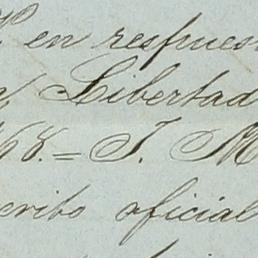 en respues
Libertad
68. = J. M
crito oficial